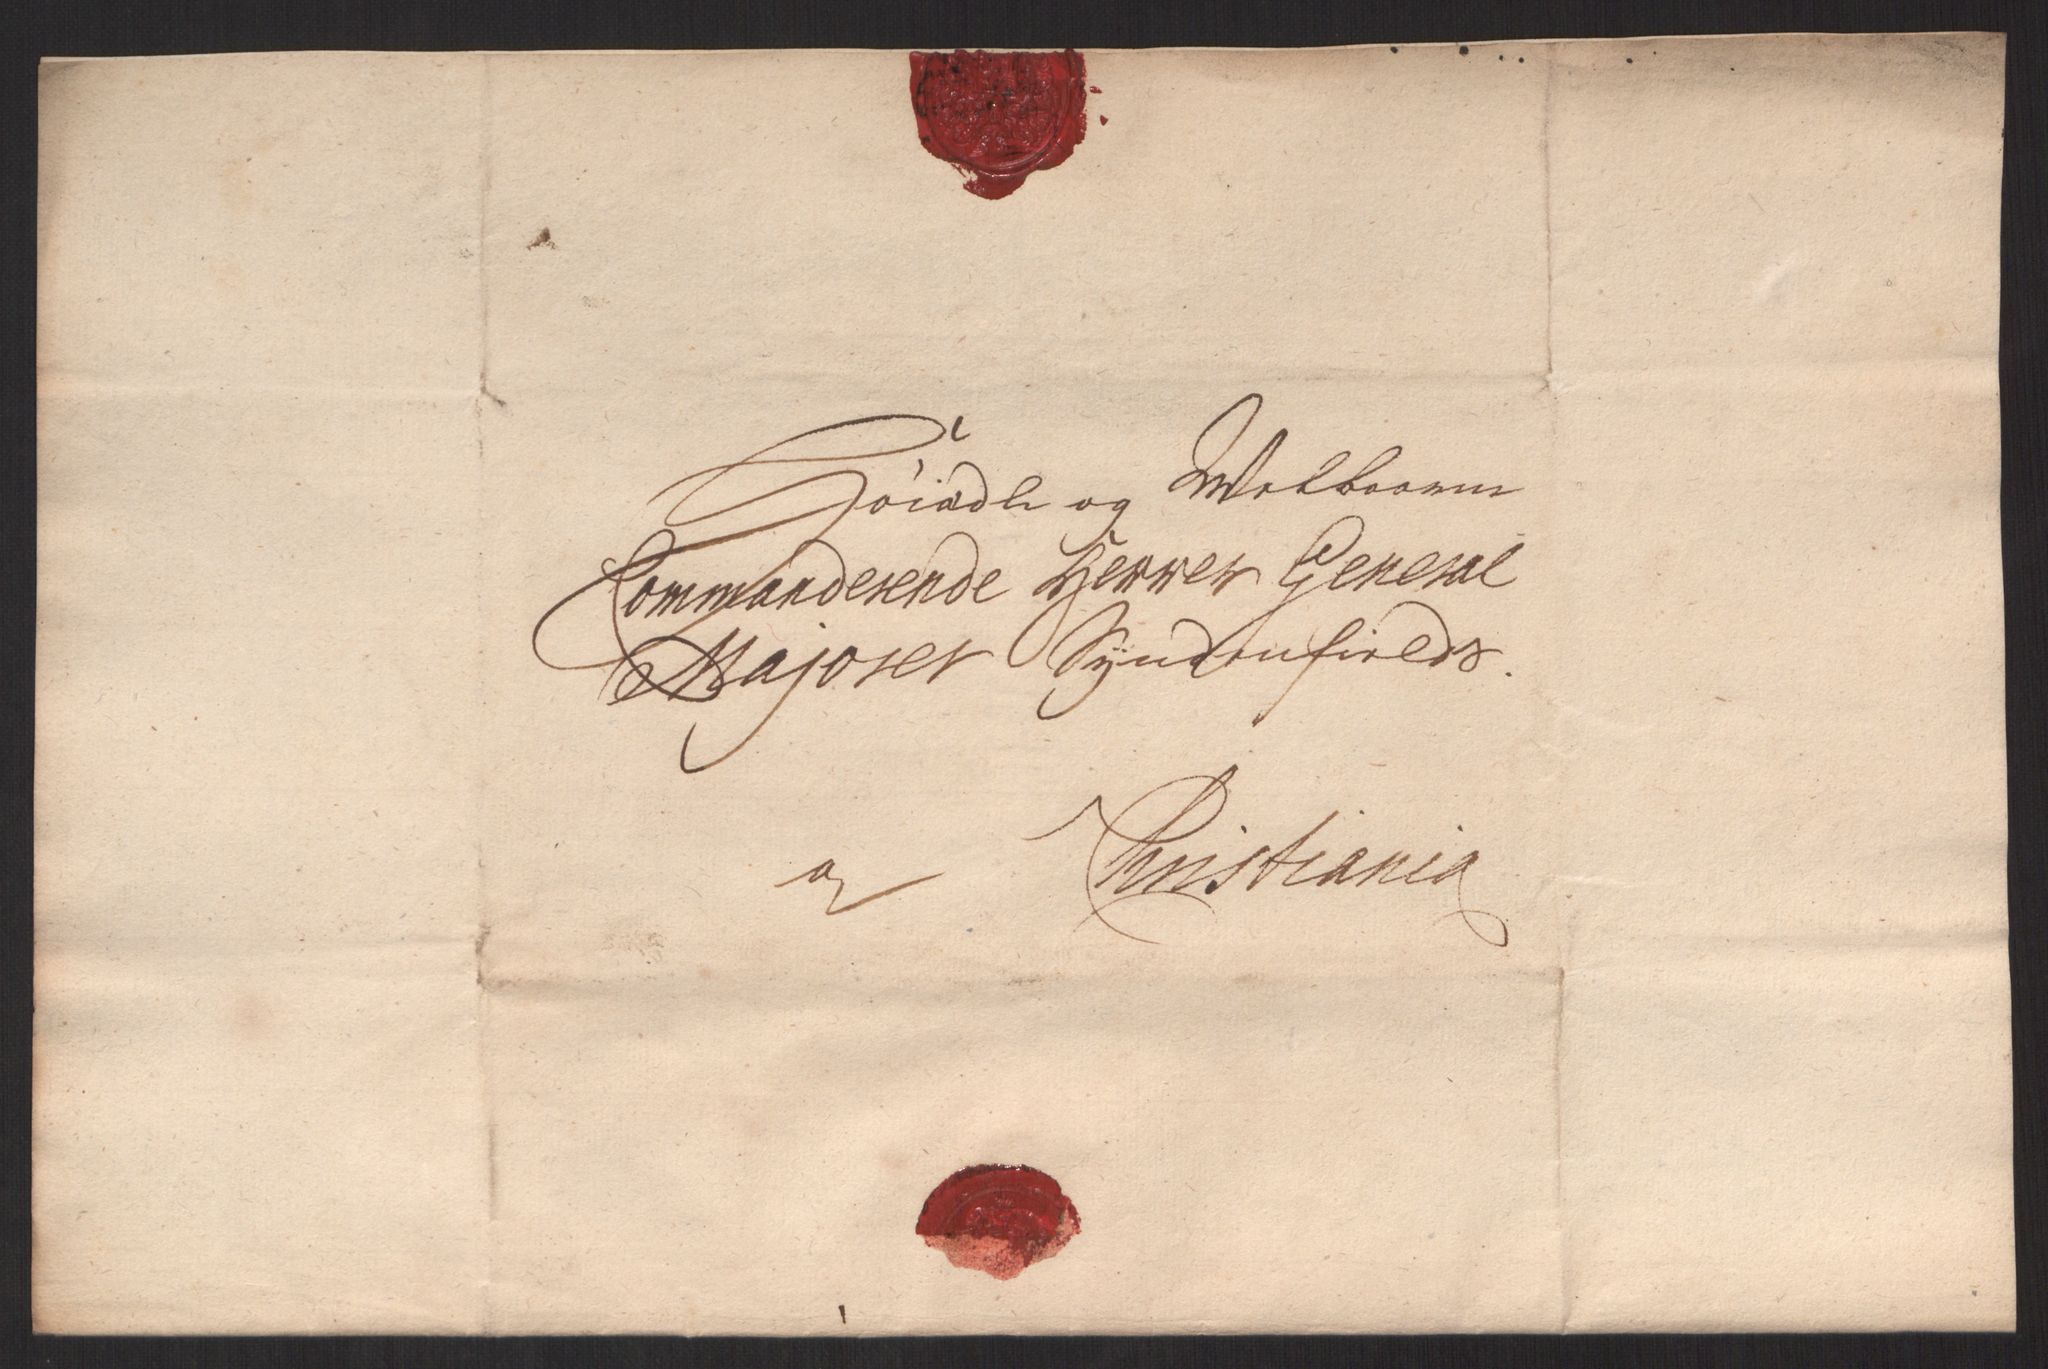 Høiædle og Welbaarne
Commanderende Herrer General
Majorer Syndenfields.
Christiania